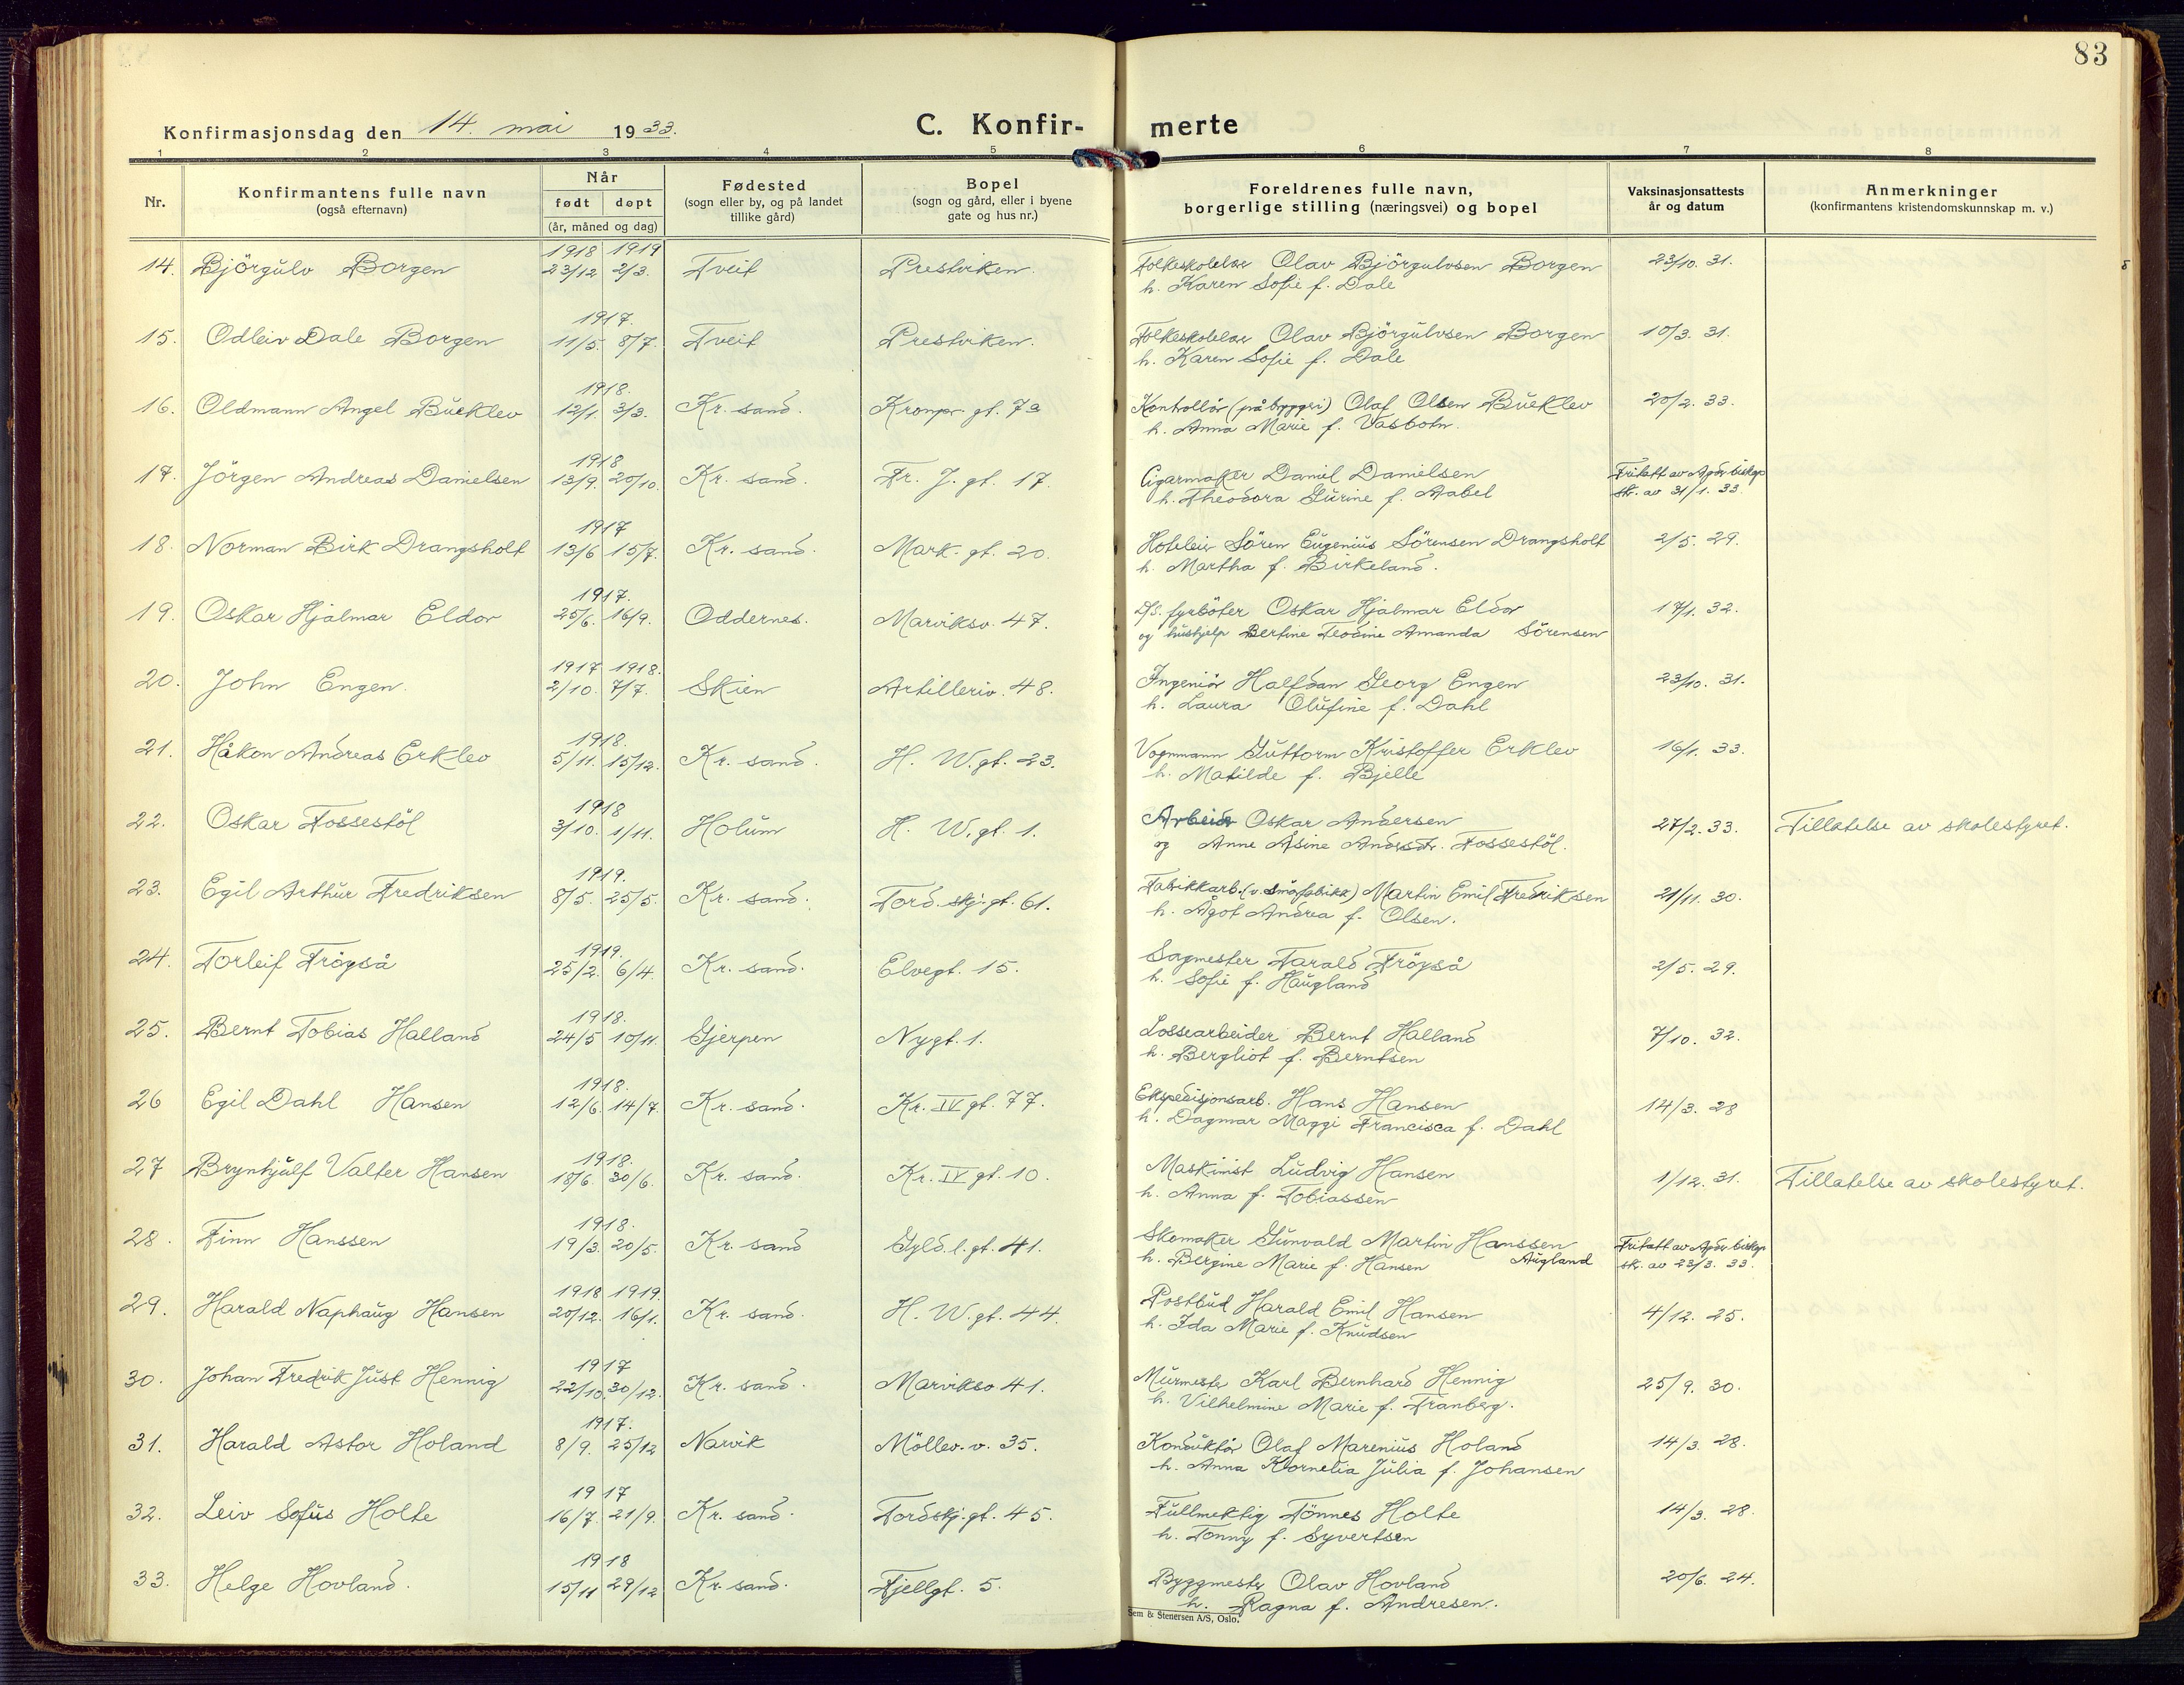 83
Konfirmasjonsdag den 14. mai 1933.
C. Konfir- merte
1 2 3 4 5 6 7 8
Nr.
Konfirmantens fulle navn
(også efternavn)
Når
født døpt
(år, måned og dag)
Fødested
(sogn eller by, og på landet
tillike gård)
Bopel
(sogn og gård, eller i byene
gate og hus nr.)
Foreldrenes fulle navn,
borgerlige stilling (næringsvei) og bopel
Vaksinasjonsattests
år og datum
Anmerkninger
(konfirmantens kristendomskunnskap m. v.)
1918 1919
14. Bjørgulv Borgen 23/12 2/3. Tveit Prestviken. Folkeskolelær Olav Bjørgulvsen Borgen 23/10. 31.
h. Karen Sofie f. Dale
1917.
15. Odleiv Dale Borgen 11/5. 8/7. Tveit Prestviken. Folkeskolelær Olav Bjørgulvsen Borgen 10/3. 31.
h. Karen Sofie f. Dale
1918.
16. Oldmann Angel Bueklev 12/1. 3/3. Kr. sand. Kronpr. gt. 73 Kontrollör (på bryggeri) Olaf Olsen Bueklev 20/2. 33.
h. Anna Marie f. Vasbotn.
1918
17. Jörgen Andreas Danielsen 13/9. 20/10. Kr. sand. Fr. J. gt. 17. Cigarmaker Daniel Danielsen Fritatt av Agder biskop
h. Theodora Gurine f. Aabel skr. av 31/1. 33.
1917
18. Norman Birk Drangsholt 13/6 15/7. Kr. sand. Mark. gt. 20. Hoteleier Sören Eugenius Sörensen Drangsholt 2/5. 29.
h. Martha f. Birkeland.
1917.
19. Oskar Hjalmar Eldor 25/6. 16/9. Oddernes. Marviksv. 47. D/S. fyrböter Oskar Hjalmar Eldor 17/1. 32.
og hushjelp Bertine Teodine Amanda Sörensen
1917 1918.
20. John Engen. 2/10. 7/7. Skien Artilleriv. 48. Ingeniör Halfdan Georg Engen 23/10. 31.
h. Laura Olufine f. Dahl
1918.
21. Håkon Andreas Erklev 5/11. 15/12. Kr. sand. H. W. gt. 23. Vognmann Guttorm Kristoffer Erklev 16/1. 33.
h. Matilde f. Bjelle
1918
22. Oskar Fossestöl 3/10. 1/11. Holum H. W. gt. 1. Arbeider Oskar Andersen 27/2. 33. Tillatelse av skolestyret.
og Anne Asine Andersdr. Fossestöl.
1919.
23. Egil Arthur Fredriksen 8/5. 25/5. Kr. sand. Tord. skj. gt. 61. Fabrikkarb. (v. smörfabrikk) Martin Emil Fredriksen 21/11. 30.
h. Ågot Andrea f. Olsen.
1919.
24. Torleif Fröyså 25/2. 6/4. Kr. sand. Elvegt. 15. Sagmester Tarald Fröyså 2/5. 29.
h. Sofie f. Haugland
1918.
25. Bernt Tobias Halland 24/5 10/11. Gjerpen Nygt. 1. Lossearbeider Bernt Halland 7/10. 32.
h. Bergliot f. Berntsen
1918.
26 Egil Dahl Hansen 12/6. 14/7. Kr. sand. Kr. IV gt. 77. Ekspedisjonsarb. Hans Hansen 14/3. 28
h. Dagmar Maggi Francisca f. Dahl
1918.
27 Brynhjulf Valter Hansen 18/6. 30/6. Kr. sand. Kr. IV gt. 10. Maskinist Ludvig Hansen 1/12. 31. Tillatelse av skolestyret.
h. Anna f. Tobiassen
1918.
28. Finn Hanssen 19/3. 20/5. Kr. sand Gyld. l. gt. 41. Skomaker Gunvald Martin Hanssen Fritatt av Agder biskop
h. Bergine Marie f. Hansen Augland skr. av 23/3. 33.
1918 1919.
29. Harald Naphaug Hansen 20/12. 16/1. Kr. sand. H. W. gt. 44. Postbud Harald Emil Hansen 4/12. 25.
h. Ida Marie f. Knudsen
1917
30. Johan Fredrik Just Hennig 22/10 30/12. Kr. sand. Marviksv 41. Murmester Karl Bernhard Hennig 25/9. 30.
h. Vilhelmine Marie f. Tranberg.
1917.
31. Harald Astor Holand 8/9. 25/12 Narvik Möllev. v. 35. Konduktör Olaf Marenius Holand 14/3. 28.
h. Anna Kornelia Julia f. Johansen
1917
32. Leiv Sofus Holte 16/7. 21/9. Kr. sand. Tordskj. gt. 45. Fullmektig Tönnes Holte 14/3. 28.
h. Tonny f. Syvertsen
1918
33. Helge Hovland. 15/11 29/12 Kr. sand. Fjellgt. 5. Byggmester Olav Hovland 20/6. 24.
h. Ragna f. Andresen.
Sem & Stenersen A/S, Oslo.